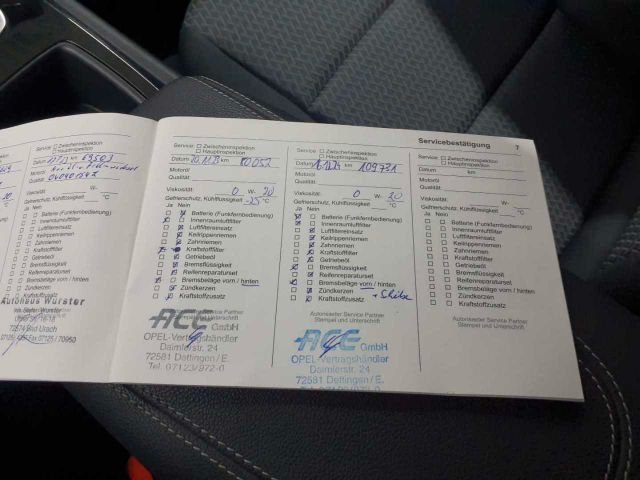 Servicebestätigung 7
Service: Zwischeninspektion
Hauptinspektion
Datum km 69503
Motoröl
Qualität 0W0W01547
Viskosität: W-
Gefrierschutz, Kühlflüssigkeit °C
Ja Nein
Batterie (Funkfernbedienung)
Innenraumluftfilter
Luftfiltereinsatz
Keilrippenriemen
Zahnriemen
Kraftstofffilter
Getriebeöl
Bremsflüssigkeit
Reifenreparaturset
Bremsbeläge vorn / hinten
Zündkerzen
Kraftstoffzusatz
Autorisierter Service Partner
Stempel und Unterschrift
Autohaus Wurster
72574 Bad Urach
Service: Zwischeninspektion
Hauptinspektion
Datum 20.11.23 km 80052
Motoröl
Qualität:
Viskosität: 0 W- 20
Gefrierschutz, Kühlflüssigkeit -25 °C
Ja Nein
Batterie (Funkfernbedienung)
Innenraumluftfilter
Luftfiltereinsatz
Keilrippenriemen
Zahnriemen
Kraftstofffilter
Getriebeöl
Bremsflüssigkeit
Reifenreparaturset
Bremsbeläge vorn / hinten
Zündkerzen
Kraftstoffzusatz
Autorisierter Service Partner
Stempel und Unterschrift
ACE GmbH
OPEL-Vertragshändler
Daimlerstr. 24
72581 Dettingen/E.
Tel. 07123/972-0
Service: Zwischeninspektion
Hauptinspektion
Datum km 109731
Motoröl
Qualität:
Viskosität: 0 W- 20
Gefrierschutz, Kühlflüssigkeit °C
Ja Nein
Batterie (Funkfernbedienung)
Innenraumluftfilter
Luftfiltereinsatz
Keilrippenriemen
Zahnriemen
Kraftstofffilter
Getriebeöl
Bremsflüssigkeit
Reifenreparaturset
Bremsbeläge vorn / hinten
Zündkerzen + Scheibe
Kraftstoffzusatz
Autorisierter Service Partner
Stempel und Unterschrift
ACE GmbH
OPEL-Vertragshändler
Daimlerstr. 24
72581 Dettingen/E.
Tel. 07123/972-0
Service: Zwischeninspektion
Hauptinspektion
Datum km
Motoröl
Qualität:
Viskosität: W-
Gefrierschutz, Kühlflüssigkeit °C
Ja Nein
Batterie (Funkfernbedienung)
Innenraumluftfilter
Luftfiltereinsatz
Keilrippenriemen
Zahnriemen
Kraftstofffilter
Getriebeöl
Bremsflüssigkeit
Reifenreparaturset
Bremsbeläge vorn / hinten
Zündkerzen
Kraftstoffzusatz
Autorisierter Service Partner
Stempel und Unterschrift